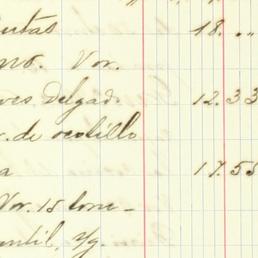 18. ..
no. Vor.
ves Delgad. 12.33
r. de ocotillo
a 17.55
Vor. 15 tone-
ntil, Yg.